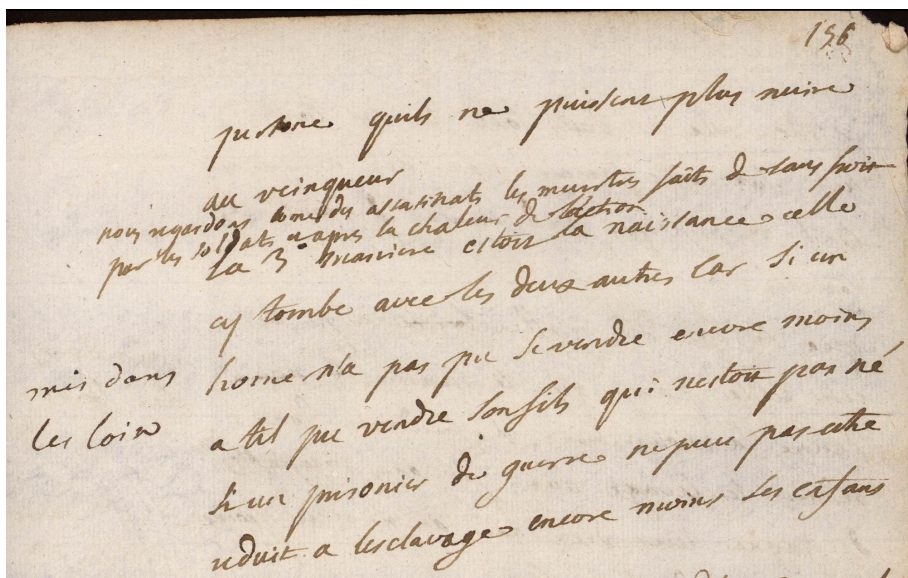 156
personne quils ne puissent plus nuire
au veinqueur
nous regardons come des assasinats les meurtres faits de sang froit
par les soldats et apres la chaleur de laction
la 3e maniere estoit la naissance celle
cy tombe avec les deux autres car si un
home n'a pas pu se vendre encore moins
a til pu vendre son fils qui nestoit pas né
si un prisonier de guerre ne peut pas estre
reduit a lesclavage encore moins ses enfans
mis dans
les loix